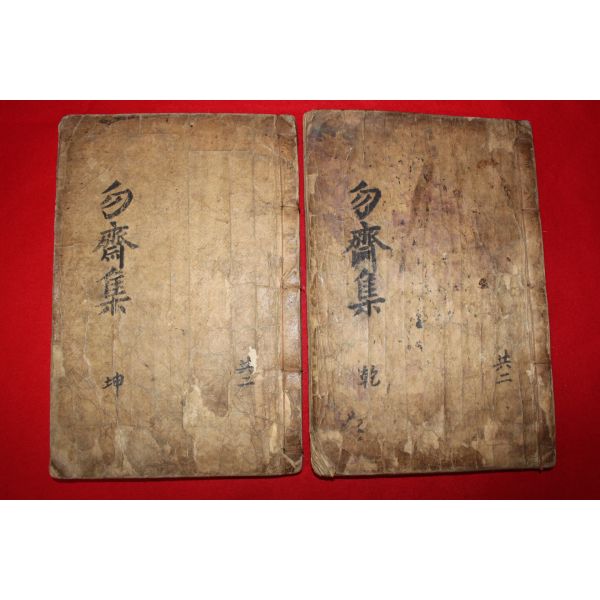 勿齋集
乾
共二
勿齋集
坤
共二